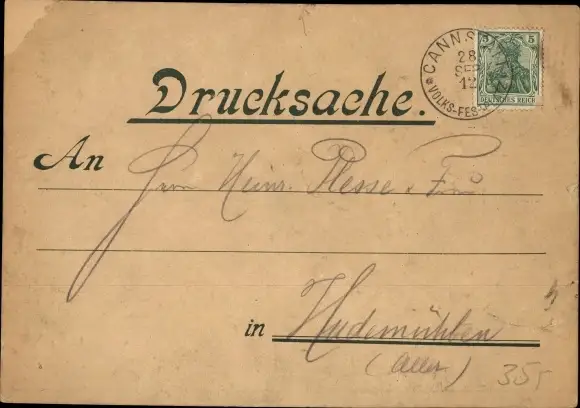 CANNSTATT
28
SEP
12
* VOLKS-FEST
5 5
DEUTSCHES REICH
Drucksache.
An Herrn Heinr. Plesse u. Frau
in Hudemühlen
(Aller)
35,